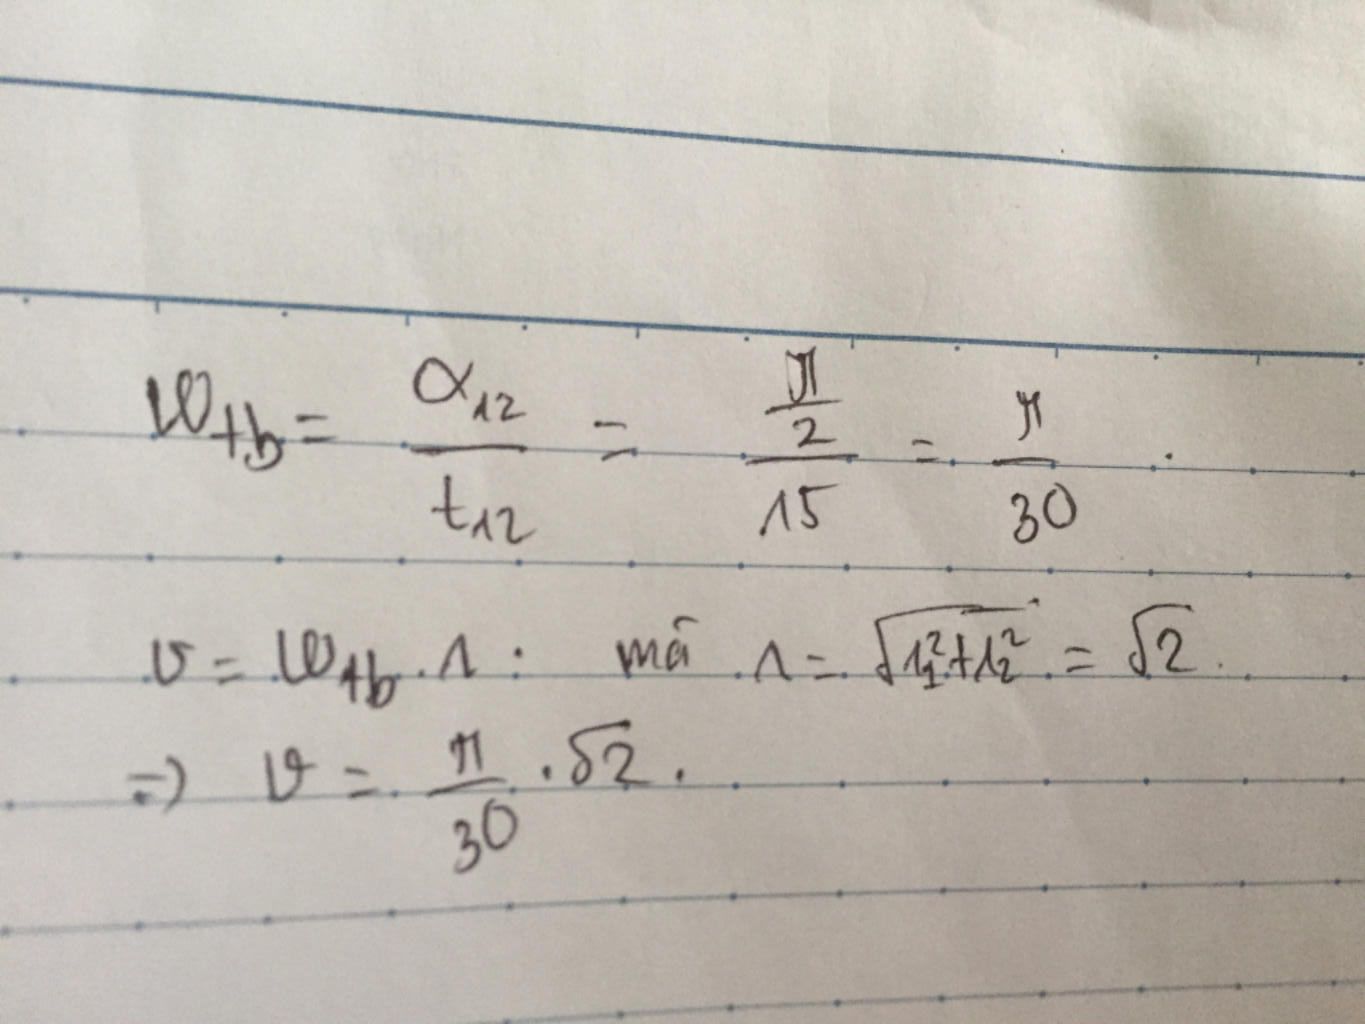 ω_tb = α_12 / t_12 = (π/2) / 15 = π/30 .
v = ω_tb . r : mà r = √(r_1² + r_2²) = √2 .
⇒ v = π/30 . √2 .